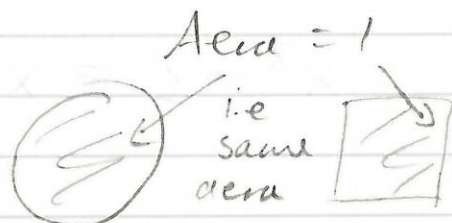 Area = 1
i.e
same
area